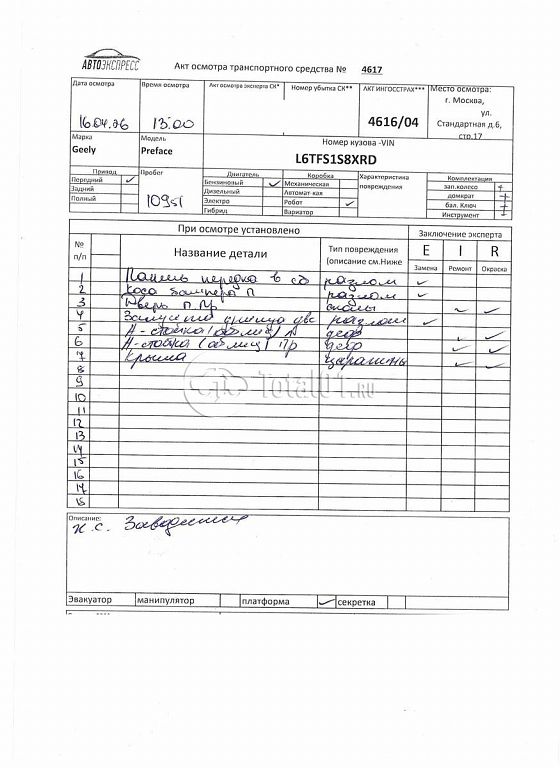 АВТОЭКСПРЕСС
Акт осмотра транспортного средства № 4617
Дата осмотра Время осмотра Акт осмотра эксперта СК* Номер убытка СК** АКТ ИНГОССТРАХ*** Место осмотра:
г. Москва,
ул.
16.04.26 13:00 4616/04 Стандартная д.6,
стр.17
Марка Модель Номер кузова -VIN
Geely Preface L6TFS1S8XRD
Привод Пробег Двигатель Коробка Характеристика повреждения Комплектация
Передний ✓ Бензиновый ✓ Механическая зап.колесо +
Задний Дизельный Автомат-кая домкрат +
Полный Электро Робот ✓ бал. Ключ +
Гибрид Вариатор Инструмент +
При осмотре установлено Заключение эксперта
№ п/п Название детали Тип повреждения (описание см.Ниже E I R
Замена Ремонт Окраска
1 Панель передка в сб разлом ✓
2 бампера П разлом ✓
3 Дверь п.пр сколы ✓ ✓
4 двс разлом ✓
5 А-стойка (облиц) л деф ✓ ✓
6 А-стойка (облиц) пр деф ✓ ✓
7 Крыша царапины ✓ ✓
8
9
10
11
12
13
14
15
16
17
18
Total01.ru
Описание:
н.с. Заводится
Эвакуатор манипулятор платформа ✓ секретка